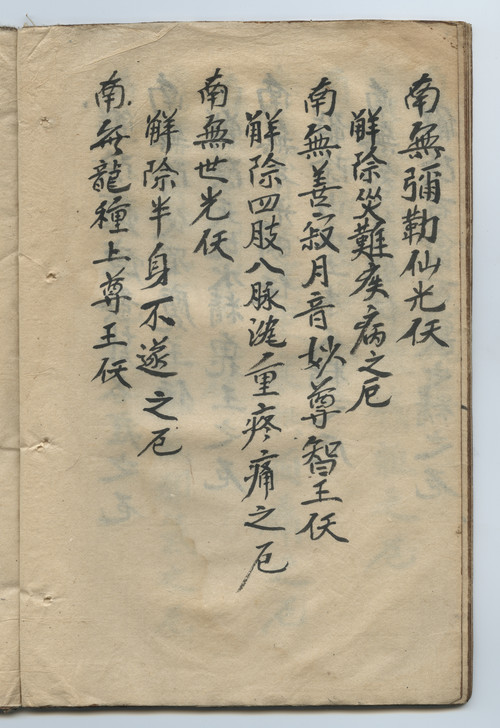 南無彌勒仙光仸
解除災難疾病之厄
南無善寂月音妙尊智王仸
解除四肢八脉沉重疼痛之厄
南無世光仸
解除半身不遂之厄
南无龍種上尊王仸